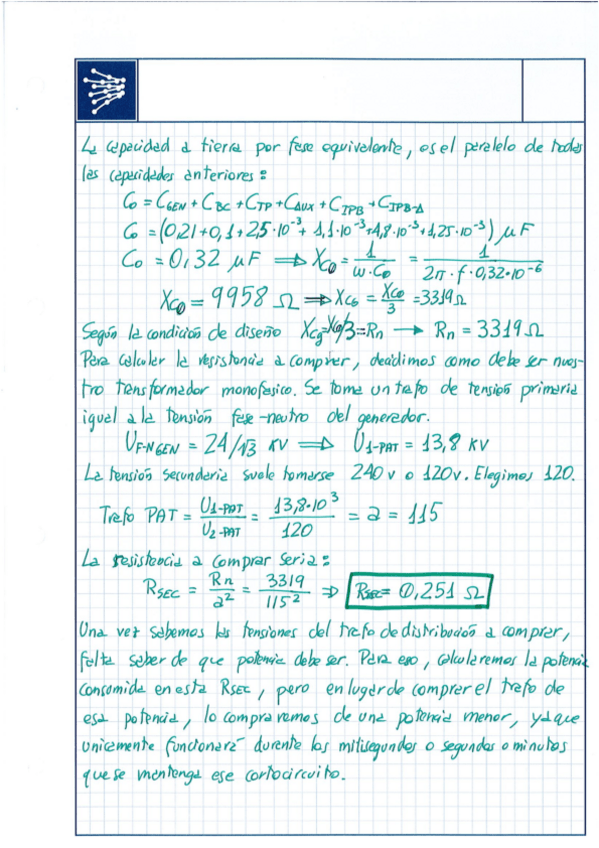 La capacidad a tierra por fase equivalente, es el paralelo de todas
las capacidades anteriores:
Co = CGEN + CBC + CTP + CAUX + CIPB + CIPB-Δ
Co = (0,21+0,1+2,5·10⁻³+ 1,1·10⁻³+4,8·10⁻³+1,25·10⁻³) μF
Co = 0,32 μF ⟹ Xco = 1/(ω·Co) = 1/(2π·f·0,32·10⁻⁶)
Xco = 9958 Ω ⟹ XCG = Xco/3 = 3319Ω
Según la condición de diseño XCg=Xco/3=Rn → Rn = 3319 Ω
Para calcular la resistencia a comprar, decidimos como debe ser nues-
tro transformador monofasico. Se toma un trafo de tensión primaria
igual a la tensión fase-neutro del generador.
UF-N GEN = 24/√3 KV ⟹ U1-PAT = 13,8 KV
La tensión secundaria suele tomarse 240 v o 120v. Elegimos 120.
Trefo PAT = U1-PAT/U2-PAT = 13,8·10³/120 = a = 115
La resistencia a comprar seria:
RSEC = Rn/a² = 3319/115² ⇒ RSEC= 0,251 Ω
Una vez sabemos las tensiones del trafo de distribución a comprar,
falta saber de que potencia debe ser. Para eso, calcularemos la potencia
consumida en esta RSEC, pero en lugar de comprar el trafo de
esa potencia, lo compraremos de una potencia menor, ya que
unicamente funcionará durante los milisegundos o segundos o minutos
que se mantenga ese cortocircuito.